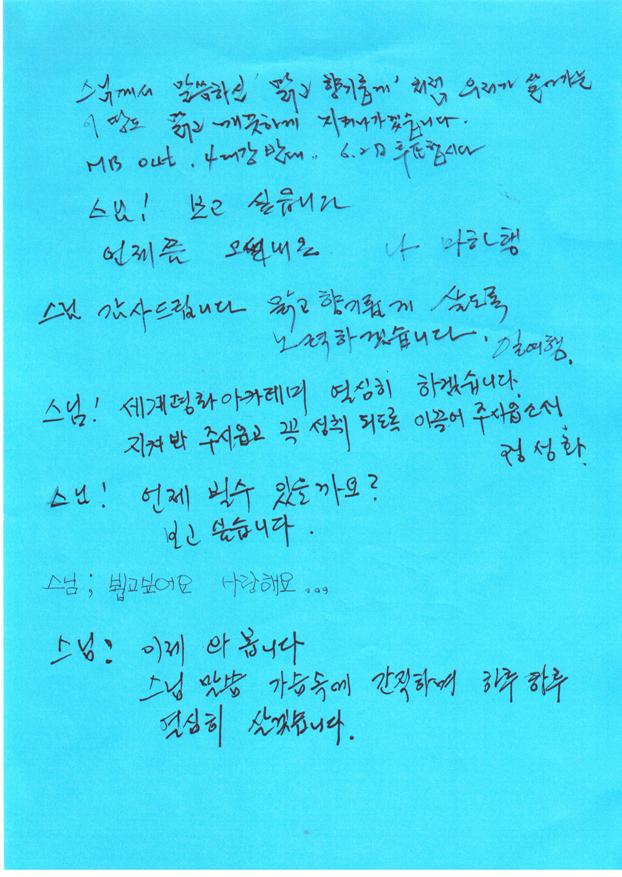 스님께서 말씀하신 '맑고 향기롭게' 처럼 우리가 살아가는
이 땅도 맑고 깨끗하게 지켜나가겠습니다.
MB out . 4대강 반대.. 6.2일 투표합시다
스님! 보고 싶습니다
언제쯤 오시나요 나 마하행
스님 감사드립니다 맑고 향기롭게 살도록
노력하겠습니다. 일여행.
스님! 세계평화아카데미 열심히 하겠습니다.
지켜봐 주시옵고 꼭 성취 되도록 이끌어 주시옵소서.
정성화.
스님! 언제 뵐수 있을까요?
보고 싶습니다.
스님; 뵙고싶어요 사랑해요...
스님! 이제 와 봅니다
스님 말씀 가슴속에 간직하며 하루 하루
열심히 살겠습니다.